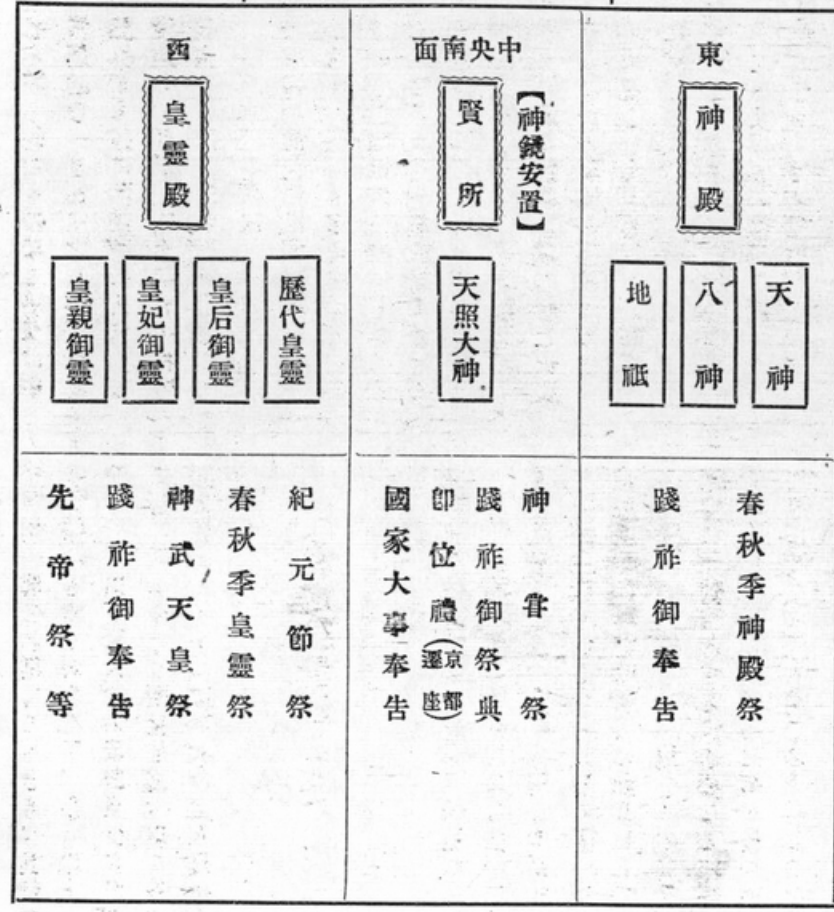 東
神殿
天神
八神
地祗
春秋季神殿祭
踐祚御奉告
中央南面
【神鏡安置】
賢所
天照大神
神甞祭
踐祚御祭典
卽位禮(京都遷座)
國家大事奉告
西
皇靈殿
歷代皇靈
皇后御靈
皇妃御靈
皇親御靈
紀元節祭
春秋季皇靈祭
神武天皇祭
踐祚御奉告
先帝祭等